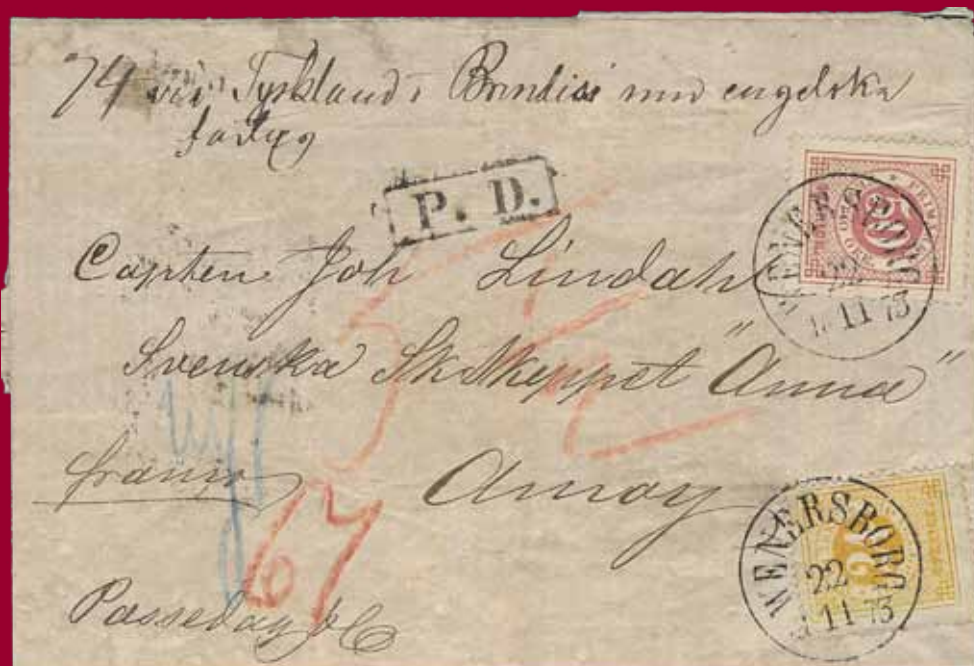 74 via Tyskland, Brindisi med engelska
P. D.
Capten Joh Lindahl
Svenska Skskeppet "Anna"
franco Amoy
5½
67
WENERSBORG
22
11 73
WENERSBORG
22
11 73